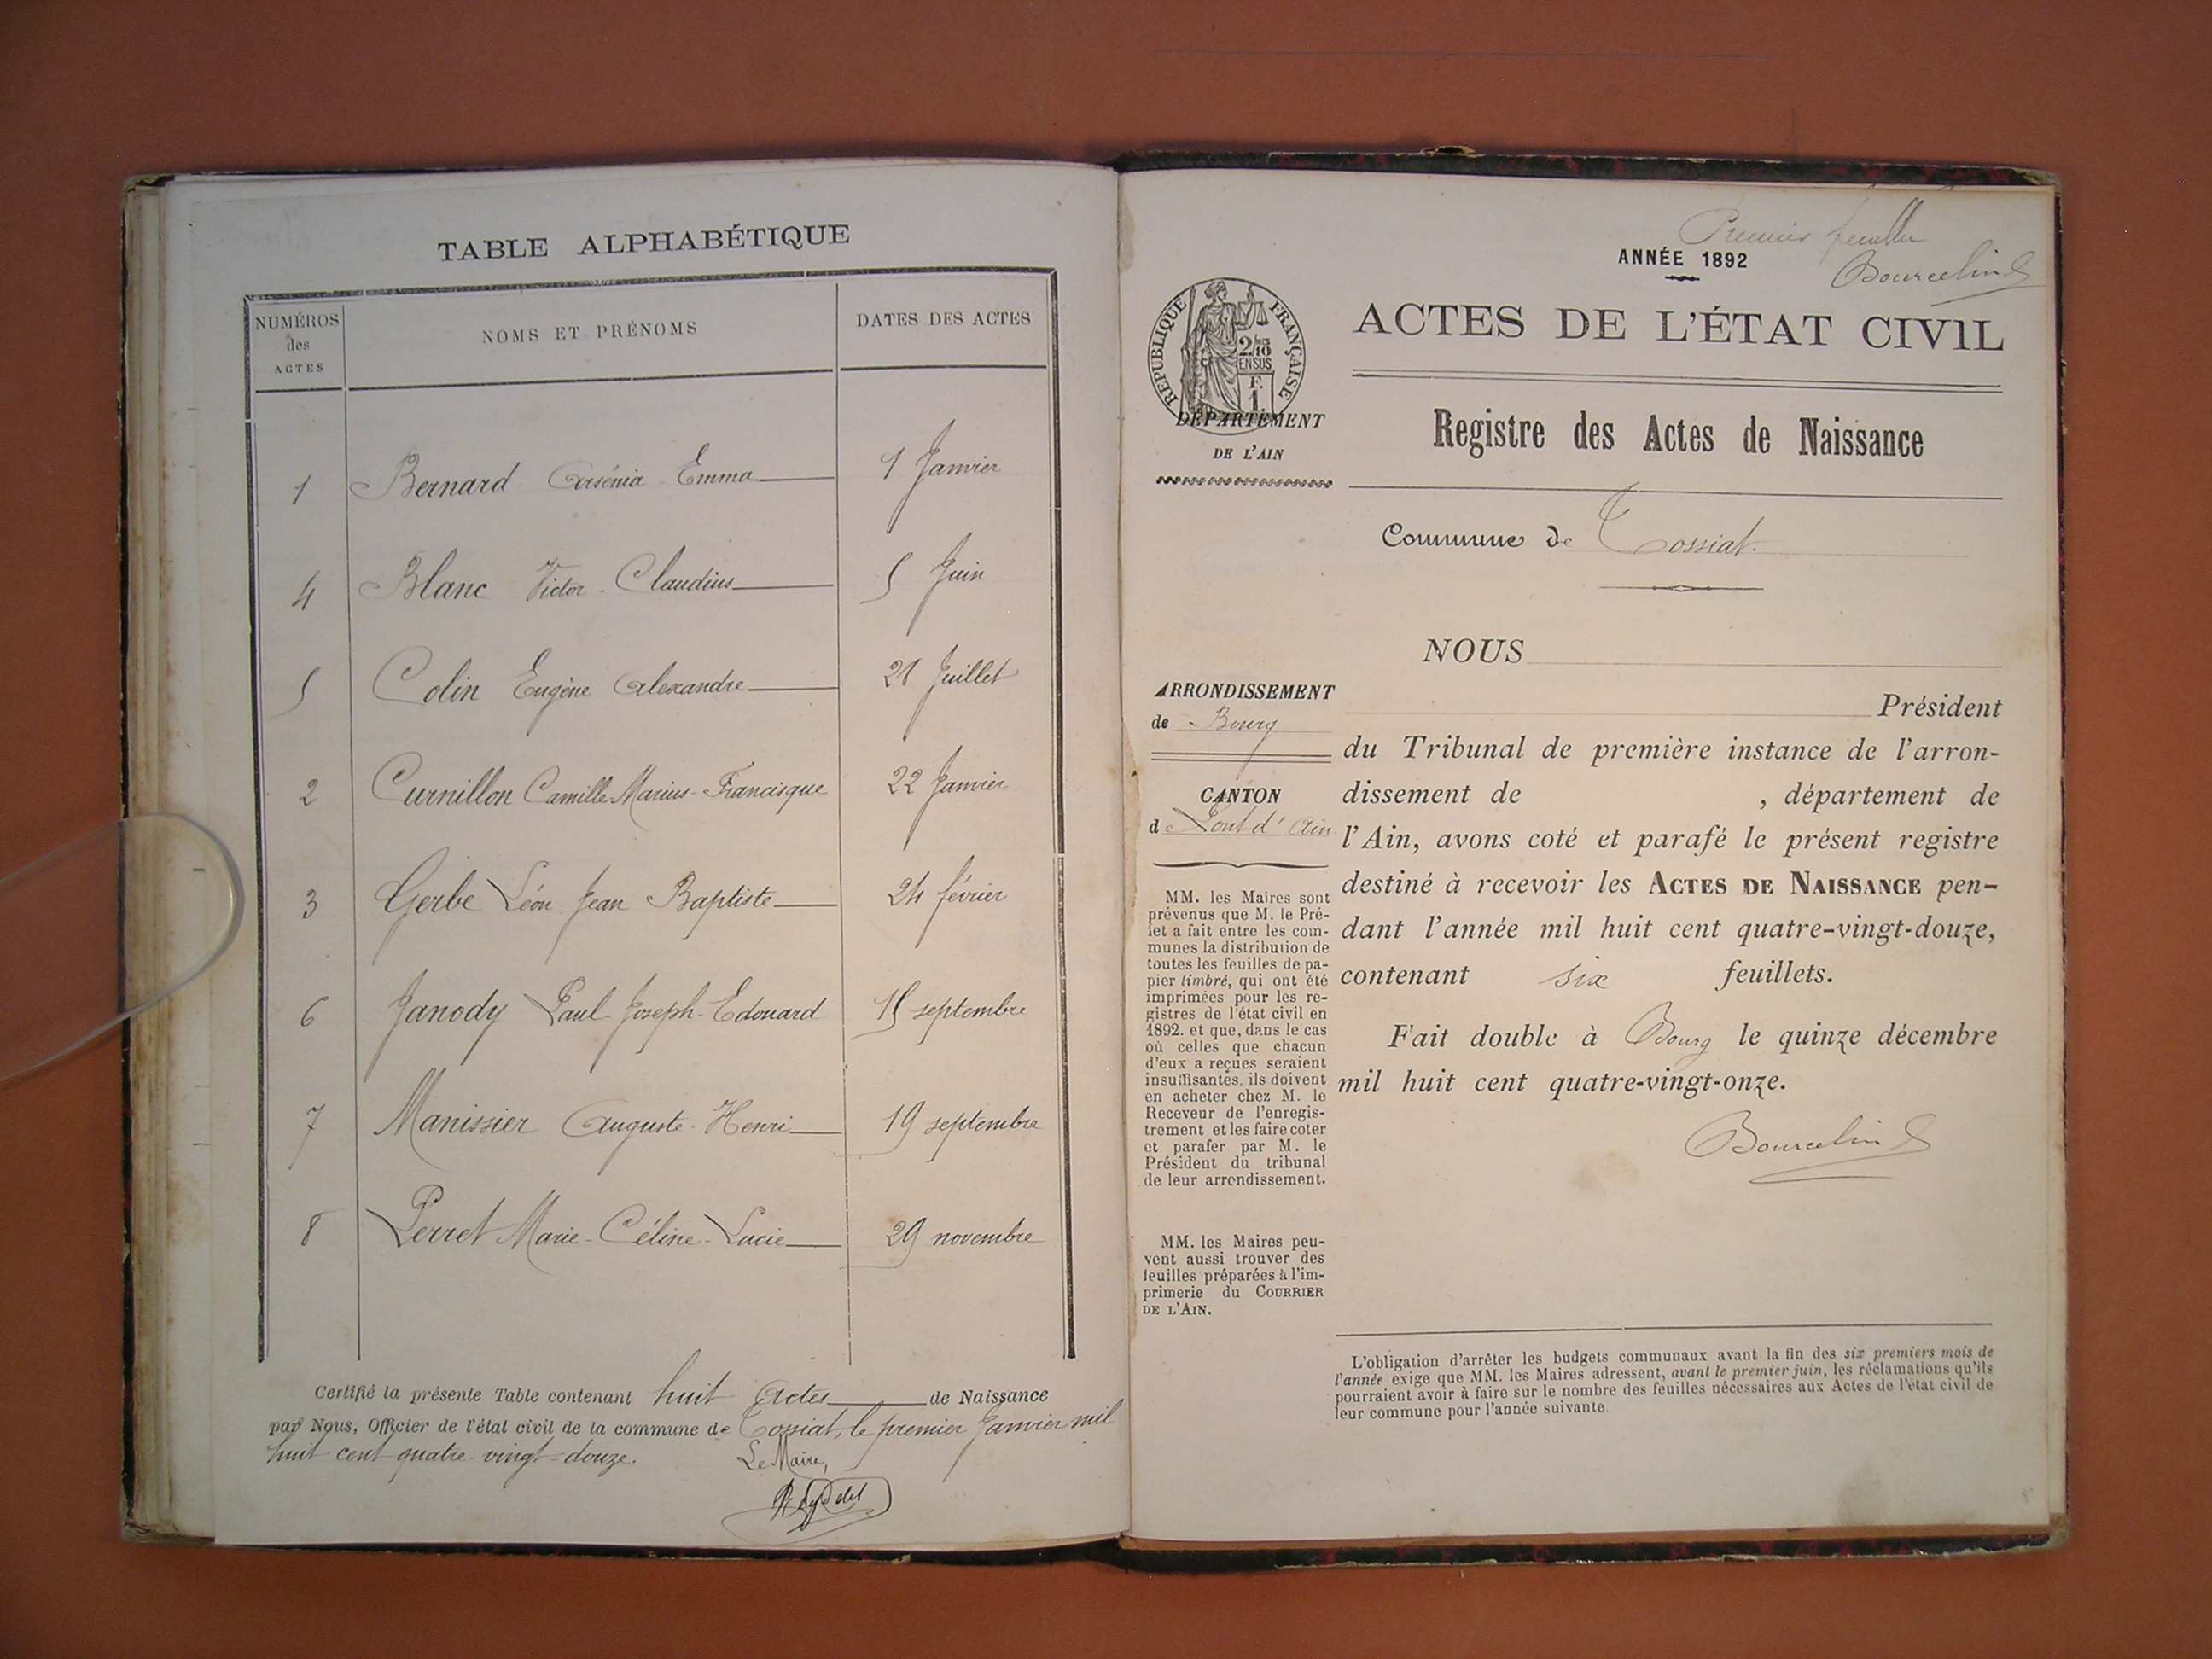 TABLE ALPHABÉTIQUE
NUMÉROS des ACTES NOMS ET PRÉNOMS DATES DES ACTES
1 Bernard Arsénia Emma 1 Janvier
4 Blanc Victor-Claudius 5 Juin
5 Colin Eugène Alexandre 21 Juillet
2 Curnillon Camille Marius-Francisque 22 Janvier
3 Gerbe Léon Jean Baptiste 24 février
6 Janody Paul-Joseph-Edouard 15 septembre
7 Manissier Auguste-Henri 19 septembre
8 Perret Marie-Céline-Lucie 29 novembre
Certifié la présente Table contenant huit Actes de Naissance
par Nous, Officier de l'état civil de la commune de Tossiat, le premier Janvier mil
huit cent quatre-vingt-douze.
Le Maire,
Premier feuillet
ANNÉE 1892
Bourcelin
RÉPUBLIQUE FRANÇAISE
2/10
EN SUS
F.
1
ACTES DE L'ÉTAT CIVIL
DÉPARTEMENT
DE L'AIN
Registre des Actes de Naissance
Commune de Tossiat.
NOUS
ARRONDISSEMENT
de Bourg
CANTON
de Pont d'Ain
MM. les Maires sont
prévenus que M. le Pré-
fet a fait entre les com-
munes la distribution de
toutes les feuilles de pa-
pier timbré, qui ont été
imprimées pour les re-
gistres de l'état civil en
1892. et que, dans le cas
où celles que chacun
d'eux a reçues seraient
insuffisantes, ils doivent
en acheter chez M. le
Receveur de l'enregis-
trement et les faire coter
et parafer par M. le
Président du tribunal
de leur arrondissement.
MM. les Maires peu-
vent aussi trouver des
feuilles préparées à l'im-
primerie du COURRIER
DE L'AIN.
Président
du Tribunal de première instance de l'arron-
dissement de , département de
l'Ain, avons coté et parafé le présent registre
destiné à recevoir les ACTES DE NAISSANCE pen-
dant l'année mil huit cent quatre-vingt-douze,
contenant six feuillets.
Fait double à Bourg le quinze décembre
mil huit cent quatre-vingt-onze.
Bourcelin
L'obligation d'arrêter les budgets communaux avant la fin des six premiers mois de
l'année exige que MM. les Maires adressent, avant le premier juin, les réclamations qu'ils
pourraient avoir à faire sur le nombre des feuilles nécessaires aux Actes de l'état civil de
leur commune pour l'année suivante.